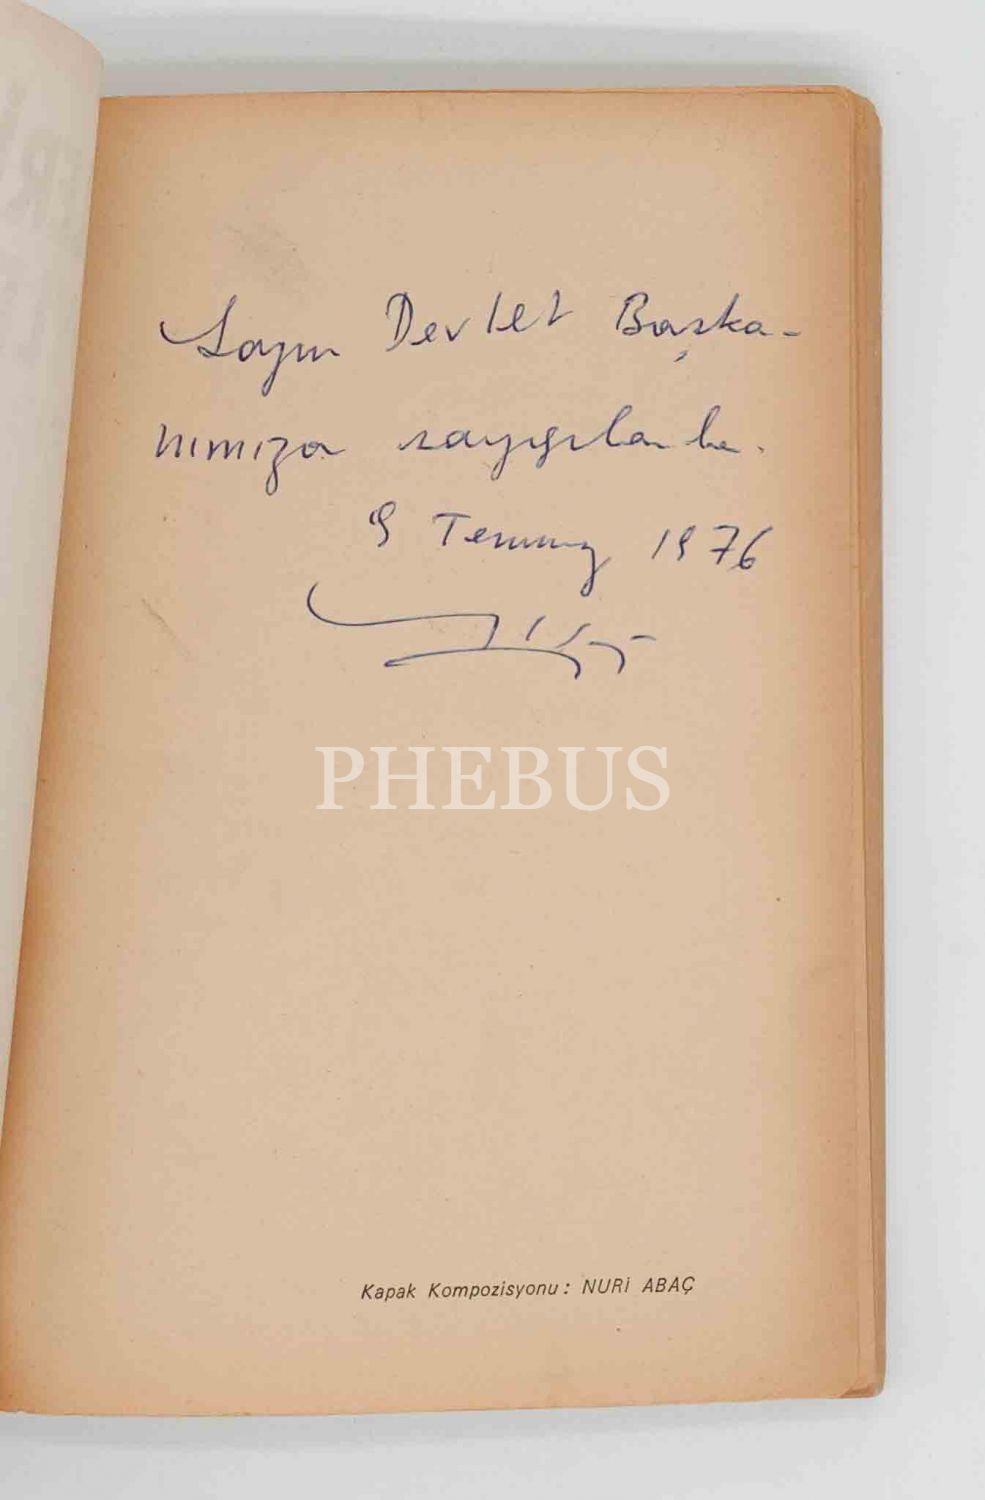 Sayın Devlet Başka-
nımıza saygılarla.
9 Temmuz 1976
PHEBUS
Kapak Kompozisyonu: NURİ ABAÇ